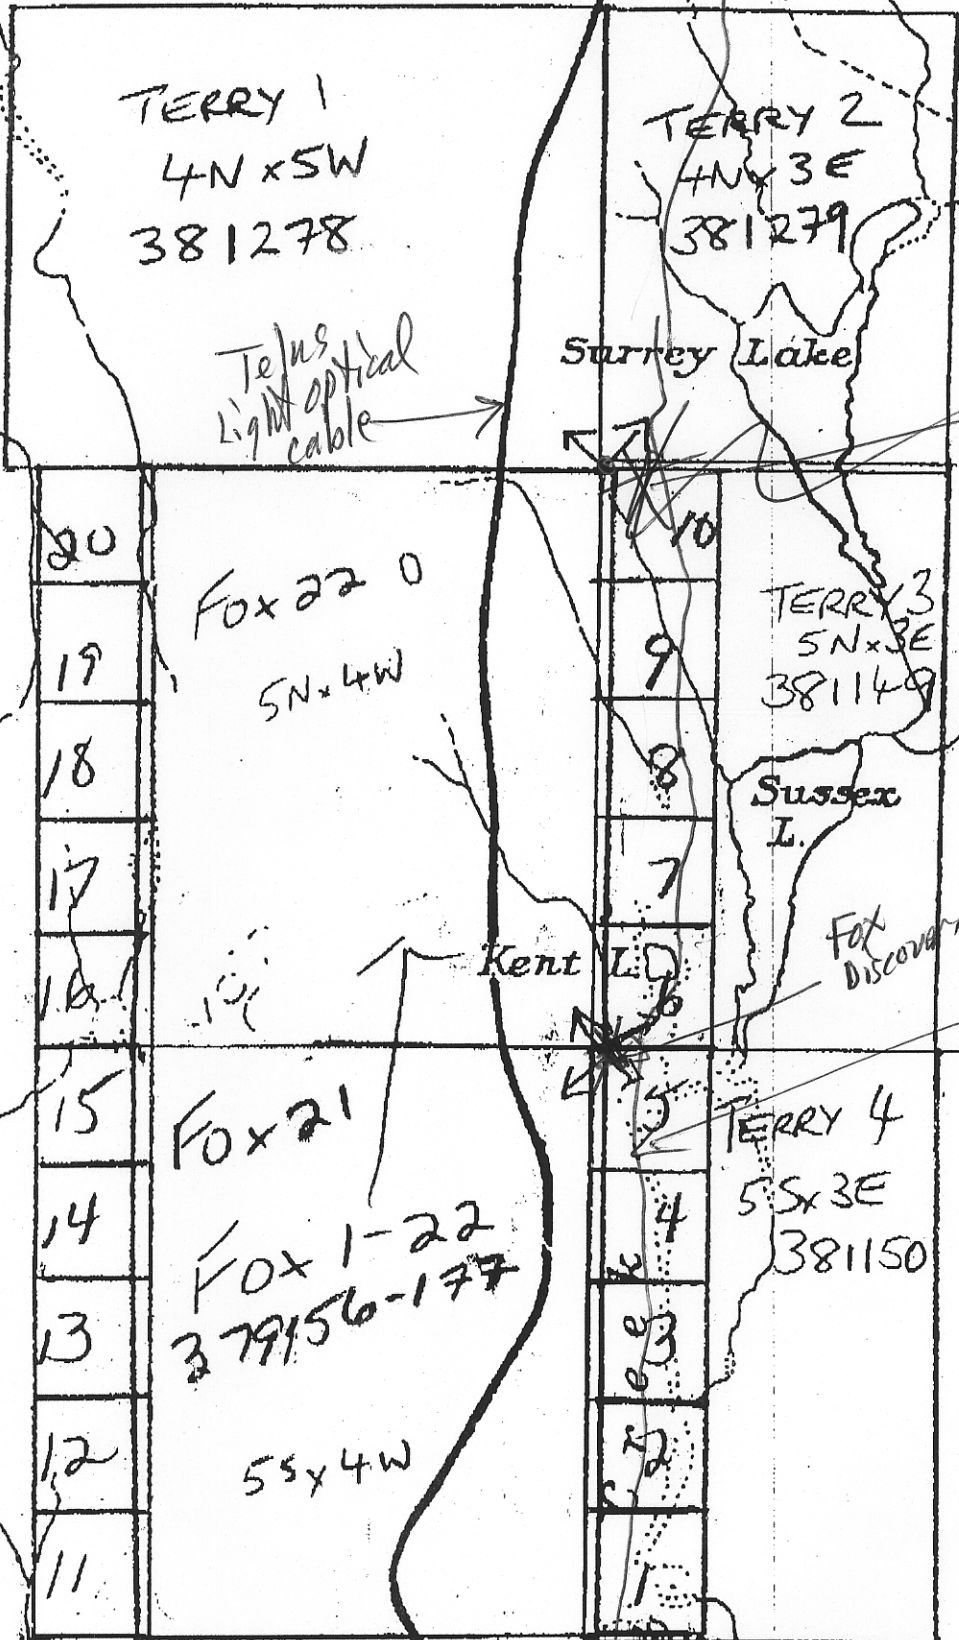 TERRY 1
4N x 5W
381278
TERRY 2
4N x 3E
381279
Telus
Light optical
cable
Surrey Lake
20
19
18
17
16
15
14
13
12
11
Fox 22
5N x 4W
10
9
8
7
6
5
4
3
2
1
TERRY 3
5N x 3E
381149
Sussex
L.
Kent L
Fox
Discovery
Fox 21
Fox 1-22
379156-177
5S x 4W
TERRY 4
5S x 3E
381150
Creek